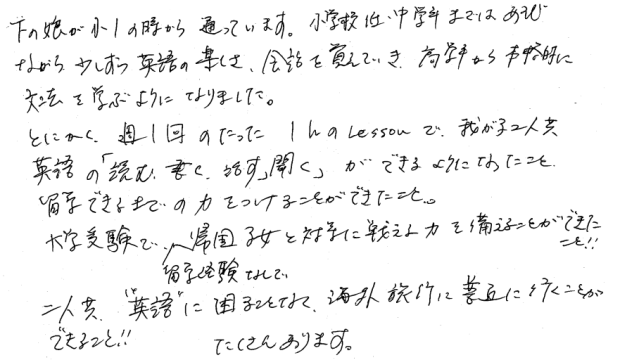 下の娘が小1の時から通っています。小学校低・中学年まではあそび
ながら少しずつ英語の楽しさ、会話を覚えていき、高学年から本格的に
文法を学ぶようになりました。
とにかく、週1回のたった1hのLessonで、我が子二人共
英語の「読む、書く、話す、聞く」ができるようになったこと
留学できるまでの力をつけることができたこと。
大学受験で、帰国子女と対等に戦える力を備えることができた
こと!!
留学経験なしで
二人共、"英語"に困ることなく、海外旅行に普通に行くことが
できること!! たくさんあります。